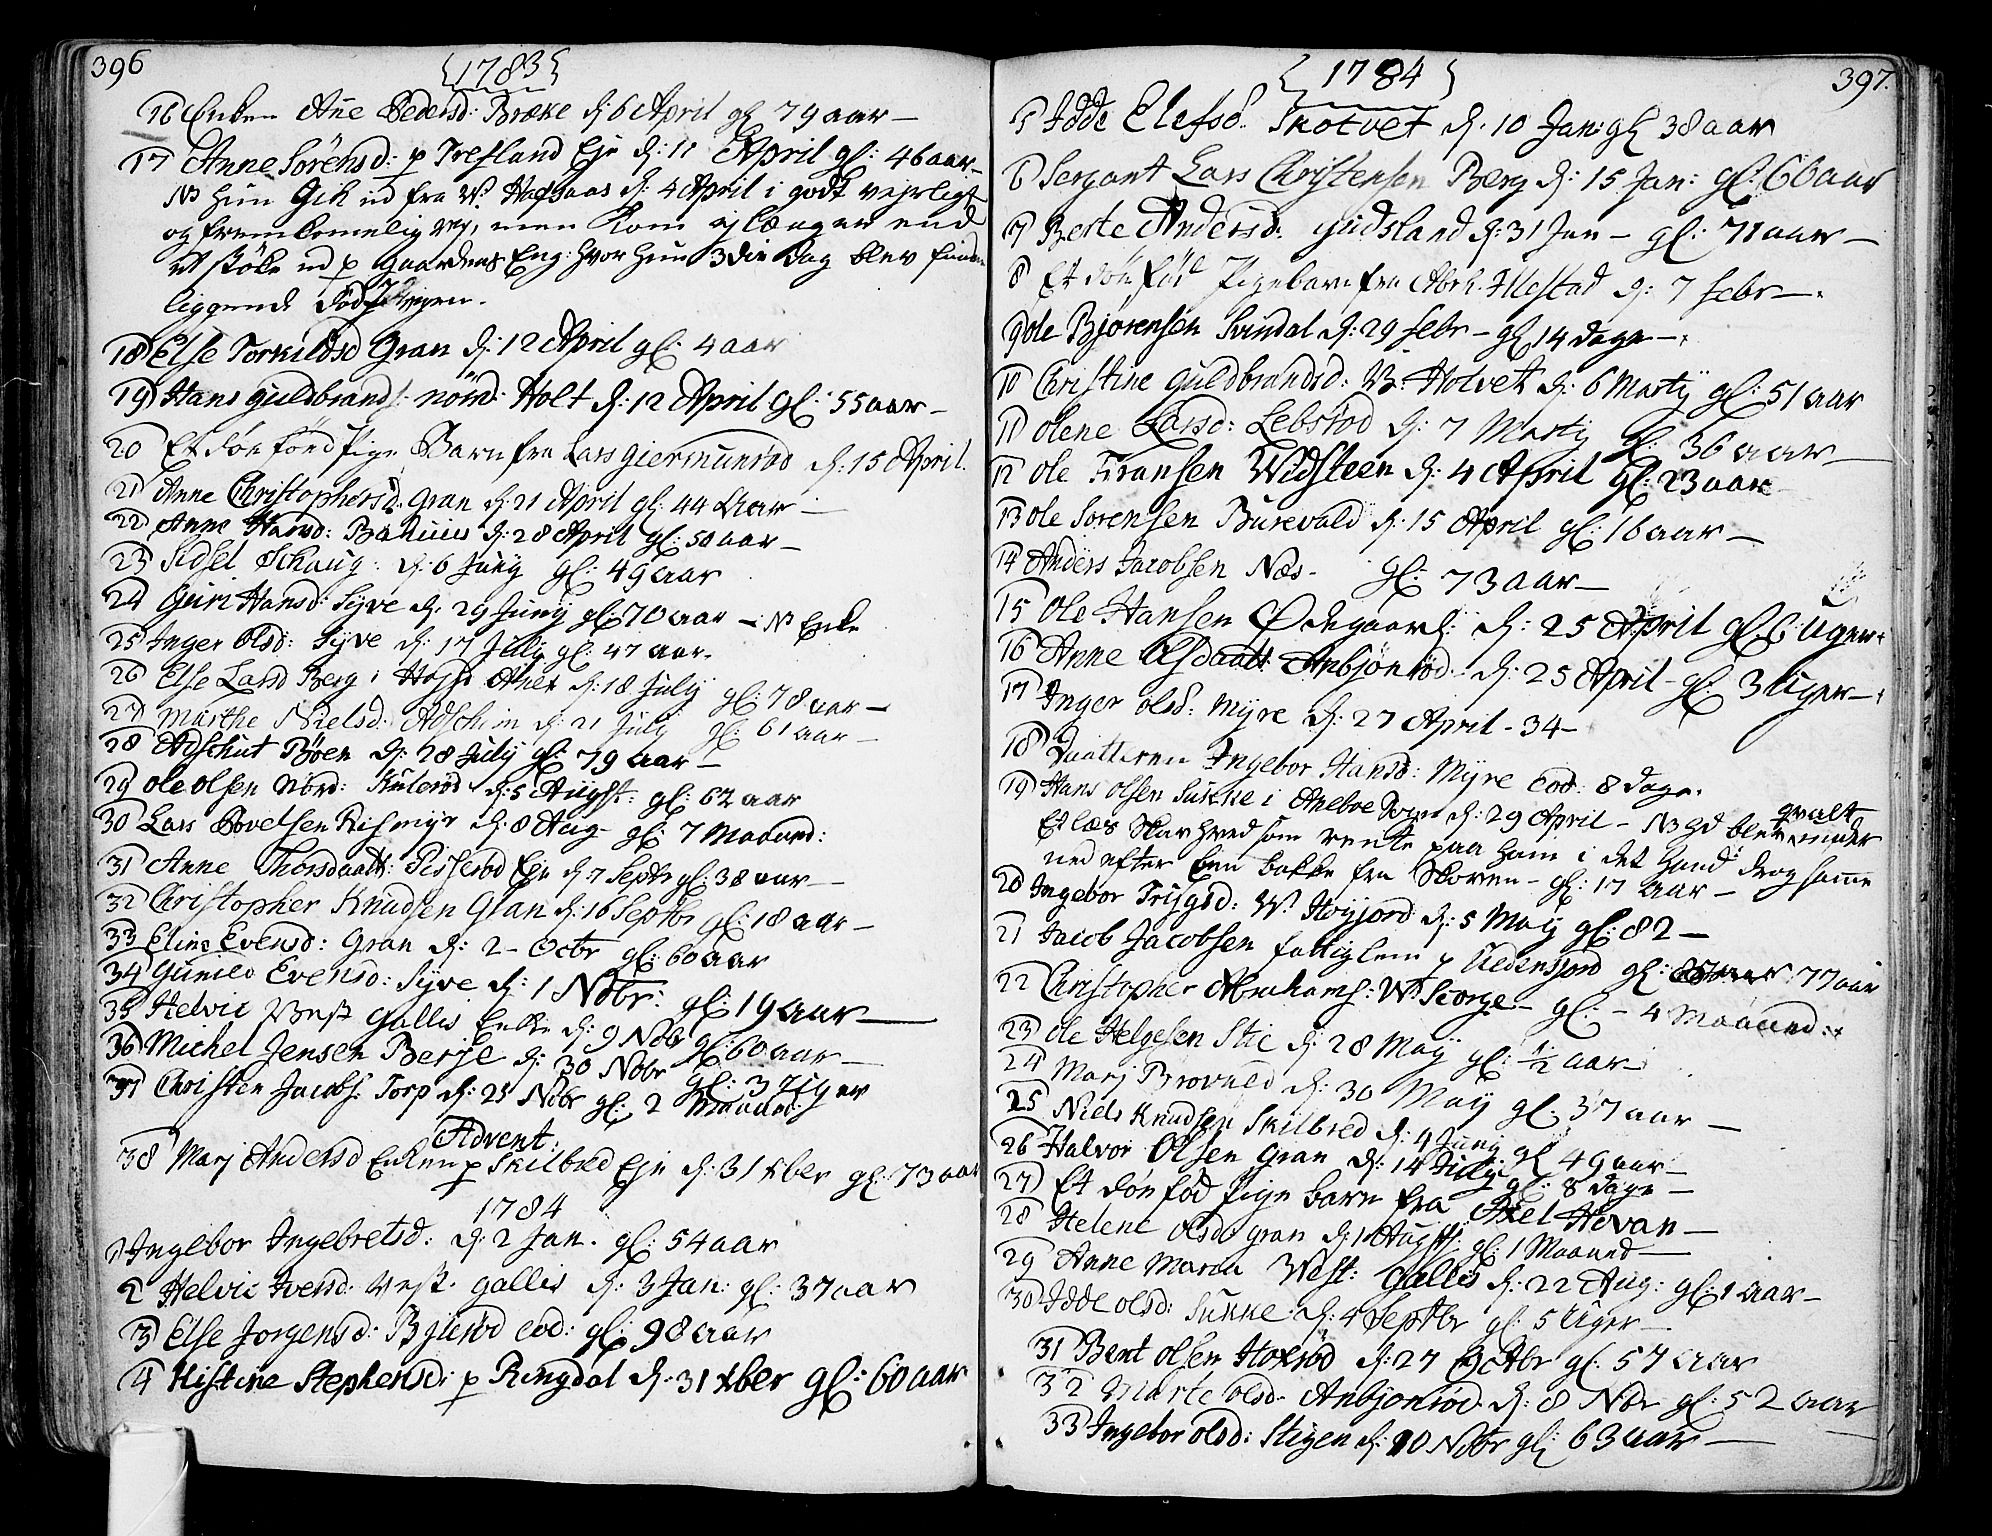 396
1783
16 Enken Añe Pedersd: Bræke d: 6 April gl 79 aar –
17 Anne Sörensd: p Trefland Eje d: 11 April gl: 46 aar –
NB hun Gik ud fra W: Hafsaas d: 4 April i godt vejrligt
og fremkomelig vej, men Kom ej længer end
et støke ud p gaardens Eng: hvor hun 3die dag blev funden
liggende død i vejen.
18 Else Torkildsd Gran d: 12 April gl: 4 aar
19 Hans Guldbrands: nörd: Holt d: 12 April gl: 55 aar –
20 Et dön fönd Pige Barn fra Lars Giermunröd d: 15 April.
21 Anne Christophersd: Gran d: 21 April gl: 44 Aar –
22 Anne Hansd: Bakuus d: 28 April gl: 50 aar –
23 Sidsel Schaug: d: 6 Junj gl: 49 aar
24 Guri Hansd: Syve d: 29 Junij gl: 70 aar – NB Enke
25 Inger Olsd: Syve d: 17 July gl: 47 aar.
26 Else Larsd Berg i d: 18 July gl: 78 aar –
27 Marthe Nielsd: d: 21 July gl: 61 aar –
28 Böen d: 28 July gl: 79 aar –
29 Ole Olsen Nörd: Kuleröd d: 5 Augst: gl: 62 aar
30 Lars Povelsen Rismyr d: 8 Aug – gl: 7 Maaned:
31 Anne Thorsdaatt: Pisseröd Eje d: 7 Septr gl: 38 aar –
32 Christopher Knudsen Gran d: 16 Septbr gl: 18 aar –
33 Eline Evensd: Gran d: 2 – Octbr gl: 60 aar
34 Gunild Evensd: Syve d: 1 Nobr: gl: 19 aar –
35 Helvic Vest Gallis Enke d: 9 Nobr gl: 60 aar –
36 Michel Jensen Berje d: 30 Nobr gl: 3 Uger
37 Christen Jacobs: Torp d: 25 Nobr gl: 2 Maaned:
Advent:
38 Marj Andersd Enken p Skilbred Eje d: 31 xber gl: 73 aar
1784
1 Ingebor Ingebretsd: d: 2 Jan. gl: 54 aar
2 Helvic Iversd: Vest. Gallis d: 3 Jan: gl: 37 aar
3 Else Jorgensd: Bjlerød eod: gl: 98 aar
4 Kistine Stephensd: p Ringdal d: 31 xber gl: 60 aar
397.
1784
5 Idde Elefsd. Skotvet d. 10 Jan: gl 38 aar
6 Sergant Lars Christensen Berg d: 15 Jan: gl: 66 aar
7 Berte Andersd: Gudsland d: 31 Jan – gl: 71 aar –
8 Et dön fød Pigebarn fra Abrh. Illestad d: 7 febr –.
9 Ole Bjørensen Svindal d: 29 febr – gl 14 dage –.
10 Christine Guldbrandsd: W: Holvet d: 6 Martij gl: 51 aar
11 Olene Larsd: Lebstad d: 7 Martij gl: 36 aar –
12 Ole Fransen Widsteen d: 4 April gl: 23 aar
13 Ole Sorensen Burevald d: 15 April gl: 16 aar –
14 Anders Jacobsen Næs – gl: 73 aar –
15 Ole Hansen Ødegaard: d: 25 April gl 6 Uger
16 Anne Olsdaatt: Anbjönröd – d: 25 April – gl: 3 Uger –
17 Inger Olsd: Myre d: 27 April – 34 –
18 Daatteren Ingebor Hansd: Myre eod: 8 dage.
19 Hans Olsen Sukke i d: 29 April – NB gvalt
Et læs som vente paa ham i det hand drog same
ned efter Een bakke fra Skoven – gl: 17 Aar –
20 Ingebor Trijgsd: W. Hoyjord d: 5 Maij gl: 82 –
21 Jacob Jacobsen fattiglem p gl: 77 aar
22 Christopher Abrahams: W: Scorge – gl: – 4 Maaned:
23 Ole Helgesen Stie d: 28 Maij gl: 1/2 aar –
24 Marj Brovald d: 30 Maij gl: 37 aar –
25 Niels Knudsen Skilbred d: 4 Junij gl 49 aar –
26 Halvor Olsen Gran d: 14 July gl: 8 dage –
27 Et dön fød Pige barn fra Axel Hovan –
28 Helene Olsd: Gran d: 1 Augst: gl: 1 Maaned –
29 Anne Maria West: Gallis d: 22 Aug: gl: 1 aar –
30 Idde Olsd: Sukke d: 4 Septbr gl: 5 Uger –
31 Bent Olsen Hoxröd d: 27 Octbr gl: 57 aar
32 Marte Olsd: Anbjonröd d: 8 Nobr gl: 52 aar
33 Ingebor Olsd: Stigen d: 10 Nobr gl: 63 aar –